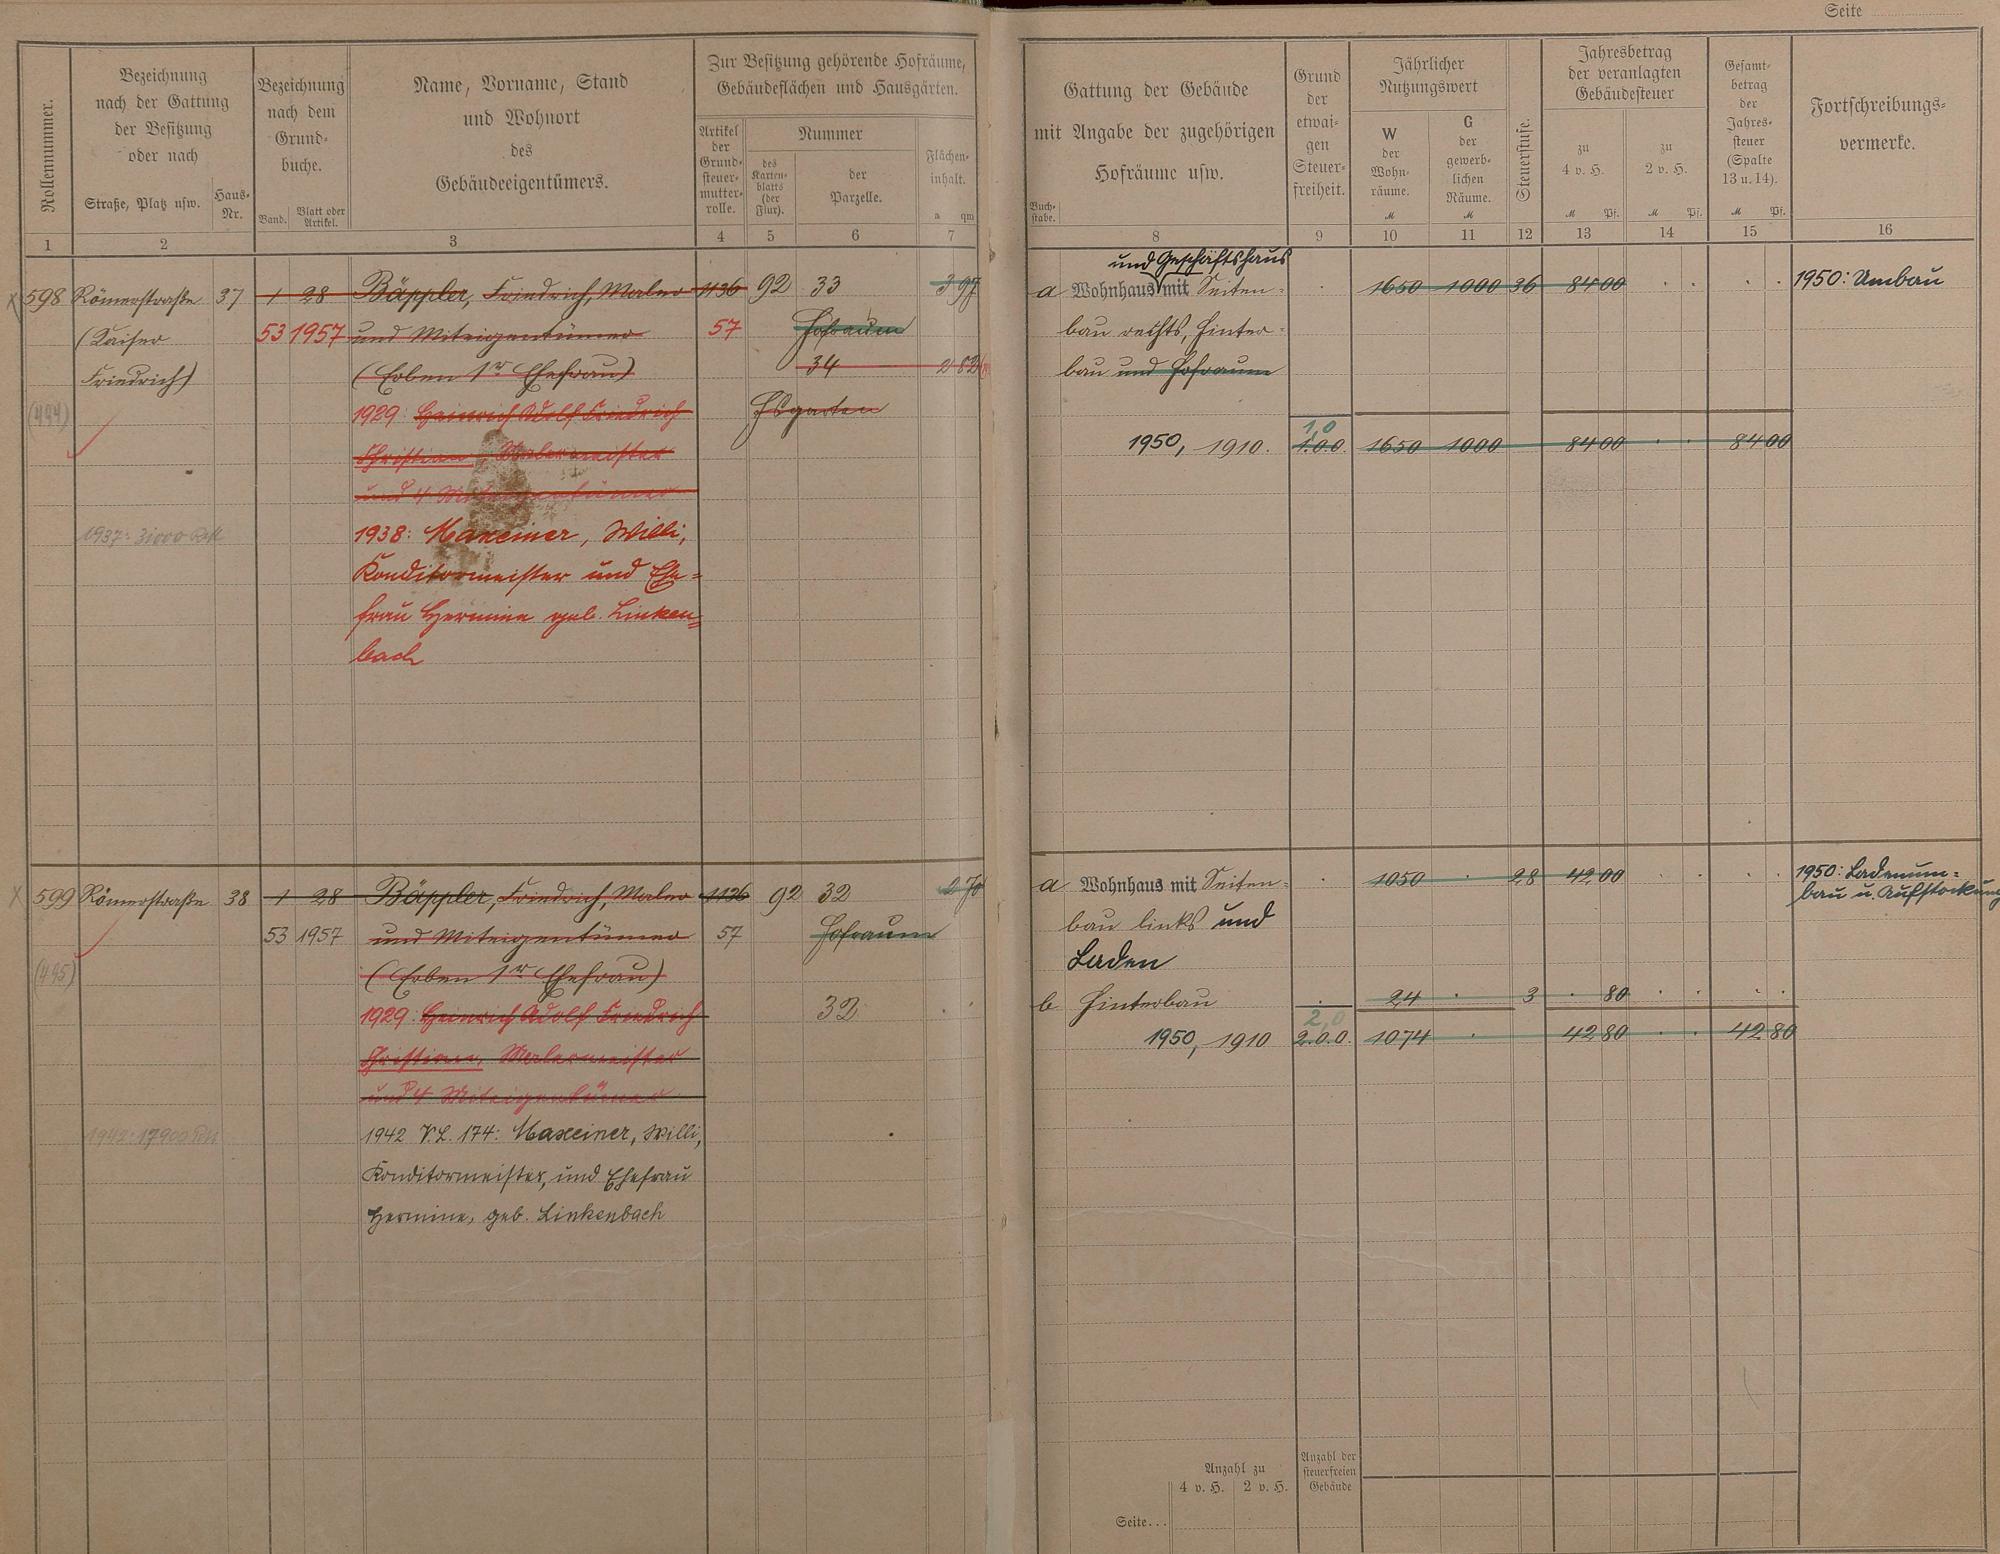 Seite
Rollennummer.
Bezeichnung
nach der Gattung
der Besitzung
oder nach
Straße, Platz usw.
Haus-
Nr.
Bezeichnung
nach dem
Grund-
buche.
Band.
Blatt oder
Artikel.
Name, Vorname, Stand
und Wohnort
des
Gebäudeeigentümers.
Zur Besitzung gehörende Hofräume,
Gebäudeflächen und Hausgärten.
Artikel
der
Grund-
steuer-
mutter-
rolle.
Nummer
des
Karten-
blatts
(der
Flur).
der
Parzelle.
Flächen-
inhalt.
a qm
1 2 3 4 5 6 7
598 Römerstraße 37 1 28 Bäppler, Friedrich, Maler 1136 92 33 3 97
(Kaiser 53 1957 und Miteigentümer 57 Hofraum
Friedrich) (Erben 1r Ehefrau) 34 2 82
(494) 1929: Heinrich Adolf Friedrich Hsgarten
Christian, Malermeister
und 4 Miteigentümer
1937: 31000 RM 1938: Maxeiner, Willi,
Konditormeister und Ehe-
frau Hermine geb. Linken-
bach
599 Römerstraße 38 1 28 Bäppler, Friedrich, Maler 1136 92 32 2 70
53 1957 und Miteigentümer 57 Hofraum
(495) (Erben 1r Ehefrau)
1929: Heinrich Adolf Friedrich 32
Christian, Malermeister
und 4 Miteigentümer
1942: 17900 RM 1942 V.L. 174: Maxeiner, Willi,
Konditormeister, und Ehefrau
Hermine, geb. Linkenbach
Gattung der Gebäude
mit Angabe der zugehörigen
Hofräume usw.
Buch-
stabe.
Grund
der
etwai-
gen
Steuer-
freiheit.
Jährlicher
Nutzungswert
W
der
Wohn-
räume.
M
G
der
gewerb-
lichen
Räume.
M
Steuerstufe.
Jahresbetrag
der veranlagten
Gebäudesteuer
zu
4 v. H.
M Pf.
zu
2 v. H.
M Pf.
Gesamt-
betrag
der
Jahres-
steuer
(Spalte
13 u. 14).
M Pf.
Fortschreibungs-
vermerke.
8 9 10 11 12 13 14 15 16
und Geschäftshaus
a Wohnhaus mit Seiten- 1650 1000 36 84 00 1950: Umbau
bau rechts, Hinter-
bau und Hofraum
1,0
1950, 1910. 1.0.0. 1650 1000 84 00 84 00
a Wohnhaus mit Seiten- 1050 28 42 00 1950: Ladenum-
bau links und bau u. Aufstockung
Laden
b Hinterbau 24 3 80
2,0
1950, 1910 2.0.0. 1074 42 80 42 80
Anzahl zu
4 v. H. 2 v. H.
Anzahl der
steuerfreien
Gebäude
Seite...